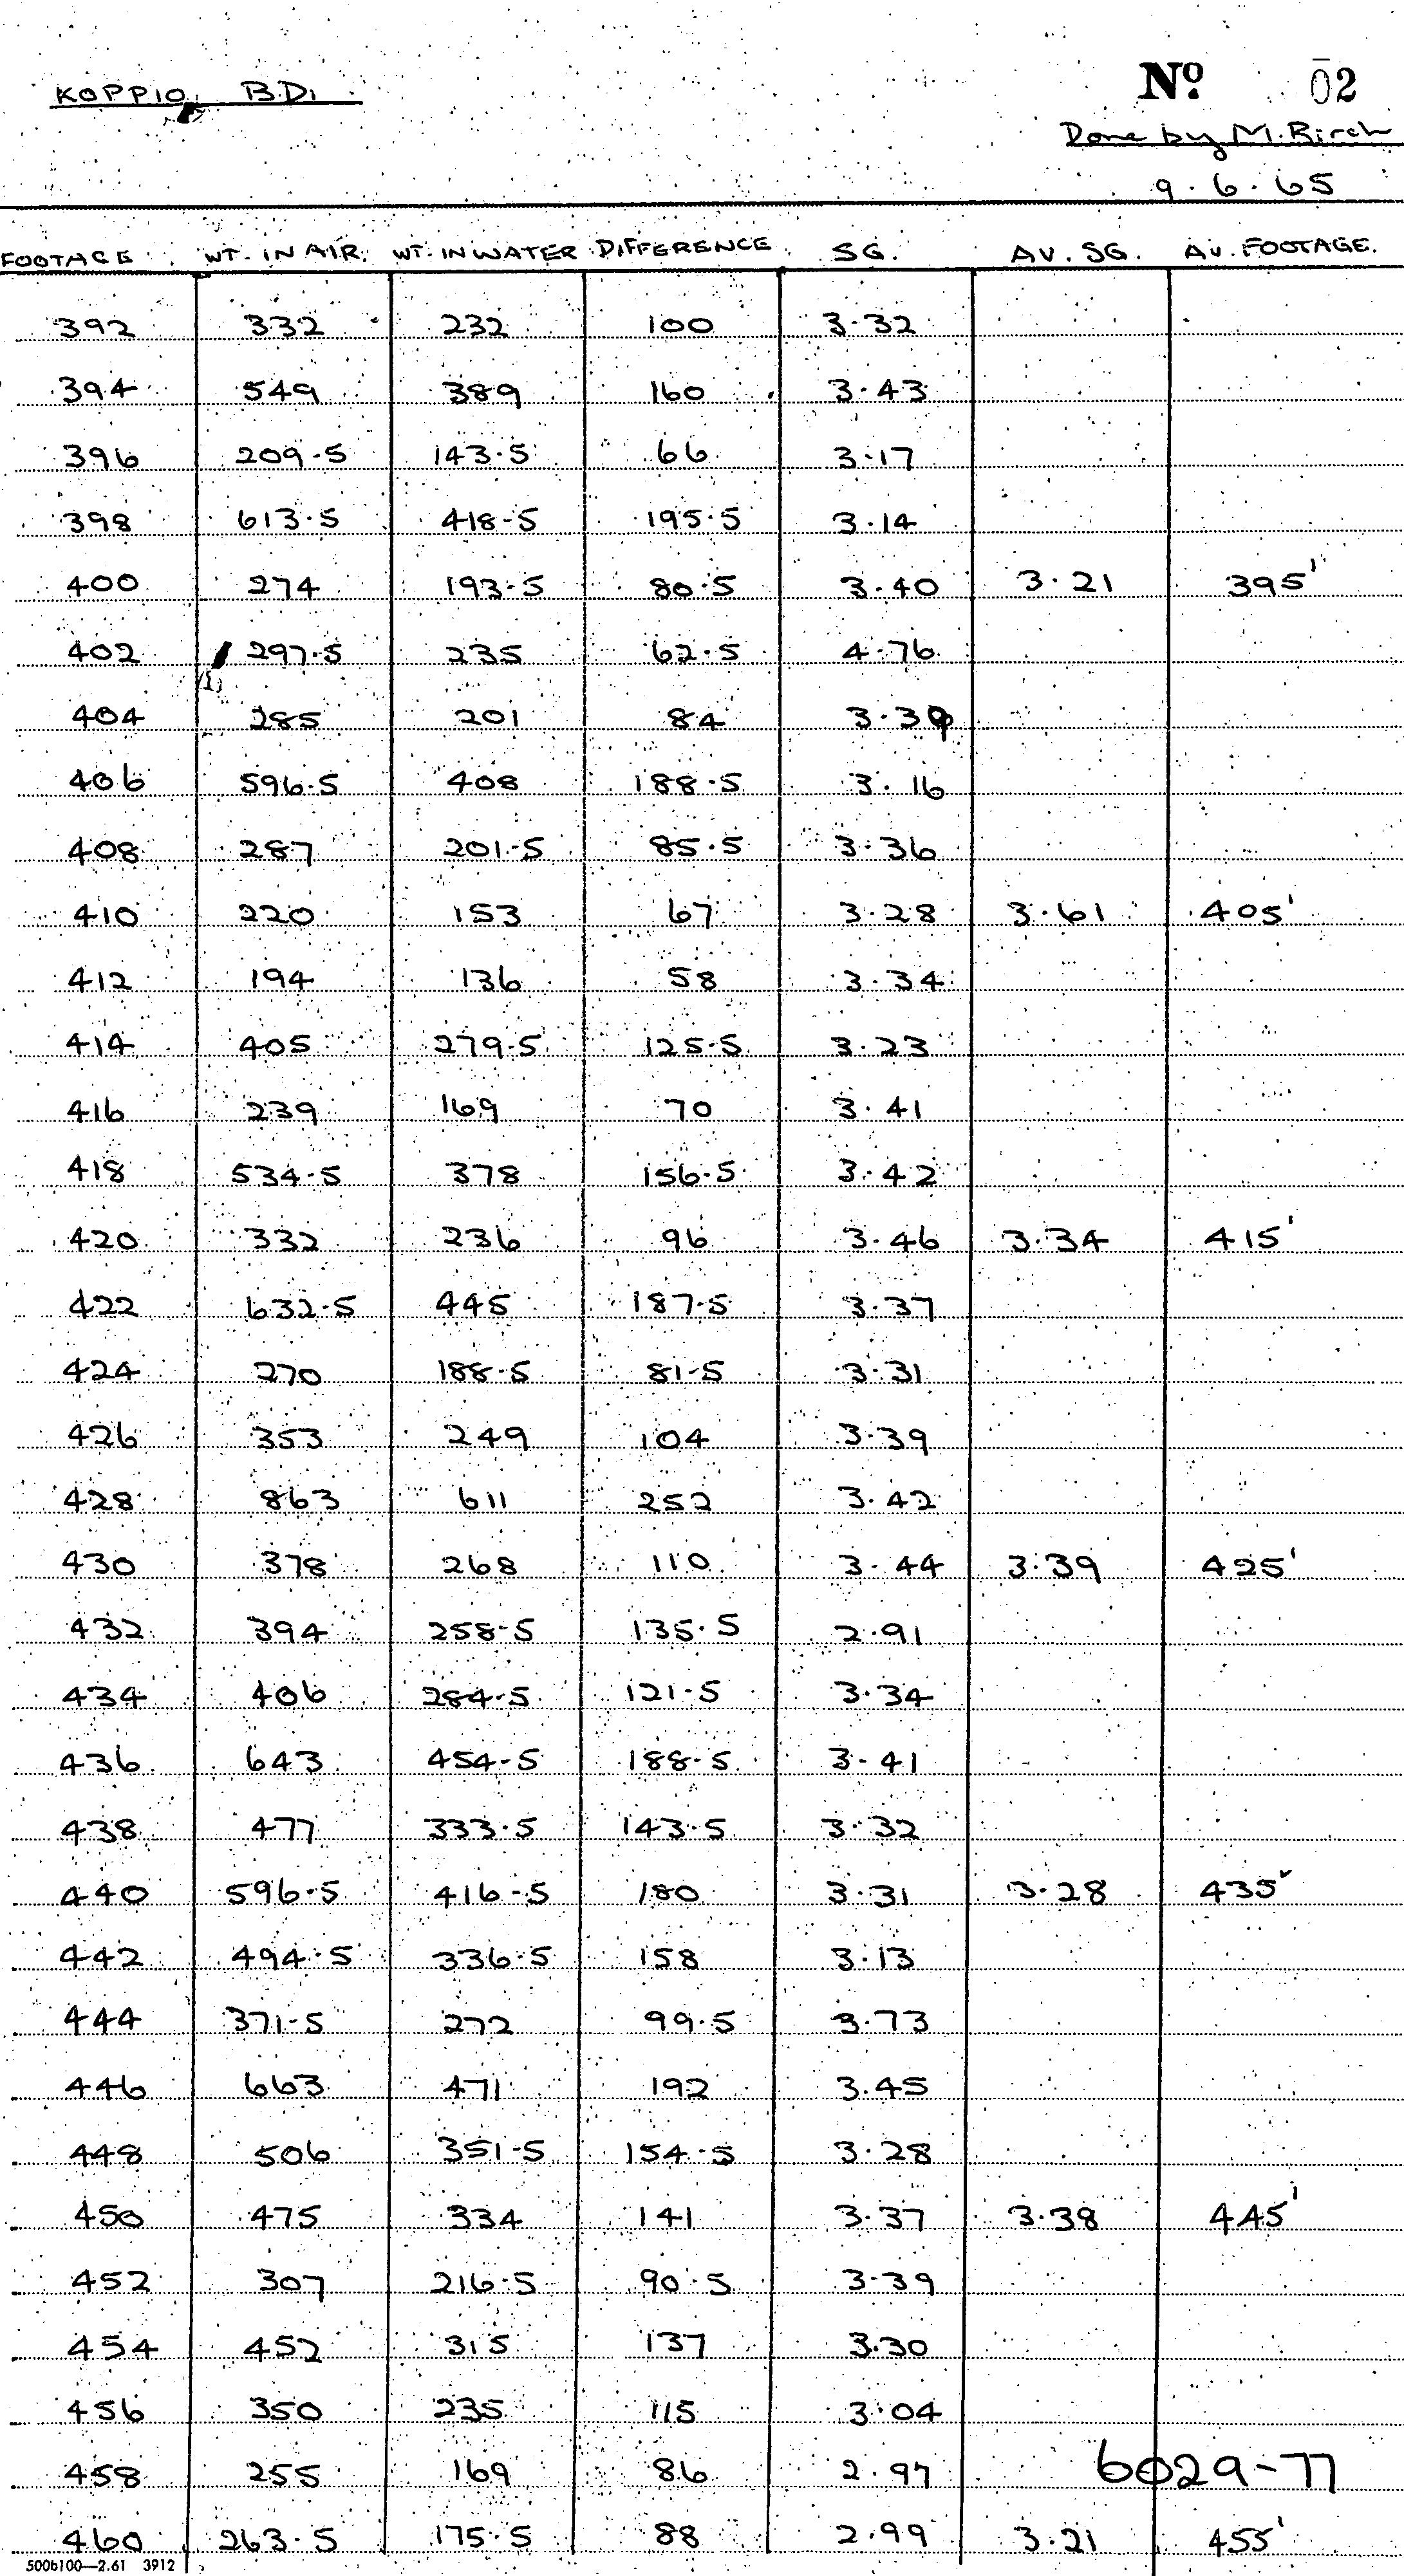 KOPPIO BD1
No. 02
Done by M. Birch
9.6.65
FOOTAGE WT. IN AIR. WT. IN WATER DIFFERENCE SG. AV. SG. AV. FOOTAGE.
392 332 232 100 3.32
394 549 389 160 3.43
396 209.5 143.5 66 3.17
398 613.5 418.5 195.5 3.14
400 274 193.5 80.5 3.40 3.21 395'
402 297.5 235 62.5 4.76
404 285 201 84 3.39
406 596.5 408 188.5 3.16
408 287 201.5 85.5 3.36
410 220 153 67 3.28 3.61 405'
412 194 136 58 3.34
414 405 279.5 125.5 3.23
416 239 169 70 3.41
418 534.5 378 156.5 3.42
420 332 236 96 3.46 3.34 415'
422 632.5 445 187.5 3.37
424 270 188.5 81.5 3.31
426 353 249 104 3.39
428 863 611 252 3.42
430 378 268 110 3.44 3.39 425'
432 394 258.5 135.5 2.91
434 406 284.5 121.5 3.34
436 643 454.5 188.5 3.41
438 477 333.5 143.5 3.32
440 596.5 416.5 180 3.31 3.28 435'
442 494.5 336.5 158 3.13
444 371.5 272 99.5 3.73
446 663 471 192 3.45
448 506 351.5 154.5 3.28
450 475 334 141 3.37 3.38 445'
452 307 216.5 90.5 3.39
454 452 315 137 3.30
456 350 235 115 3.04
458 255 169 86 2.97 6029-77
460 263.5 175.5 88 2.99 3.21 455'
500b100—2.61 3912